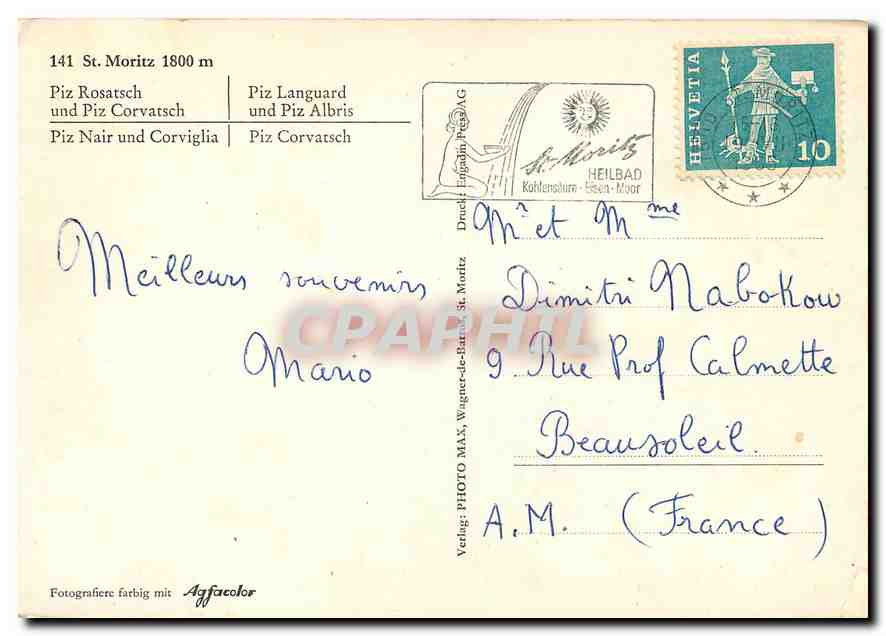 141 St. Moritz 1800 m
Piz Rosatsch
und Piz Corvatsch
Piz Languard
und Piz Albris
Piz Nair und Corviglia
Piz Corvatsch
Meilleurs souvenirs
Mario
Fotografiere farbig mit Agfacolor
Verlag: PHOTO MAX, Wagner-de-Barros, St. Moritz
Druck: Engadin Press AG
St. Moritz
HEILBAD
Kohlensäure - Eisen - Moor
HELVETIA
10
Mr et Mme
Dimitri Nabokow
9 Rue Prof Calmette
Beausoleil
A.M. (France)
CPAPHIL